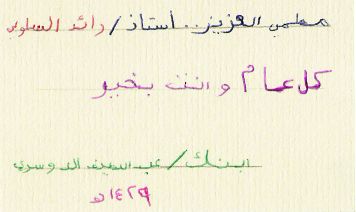 معلمي العزيز.. أستاذ/ رائد
كل عام وانت بخير
ابنك/ عبد الدوسري
١٤٢٩هـ